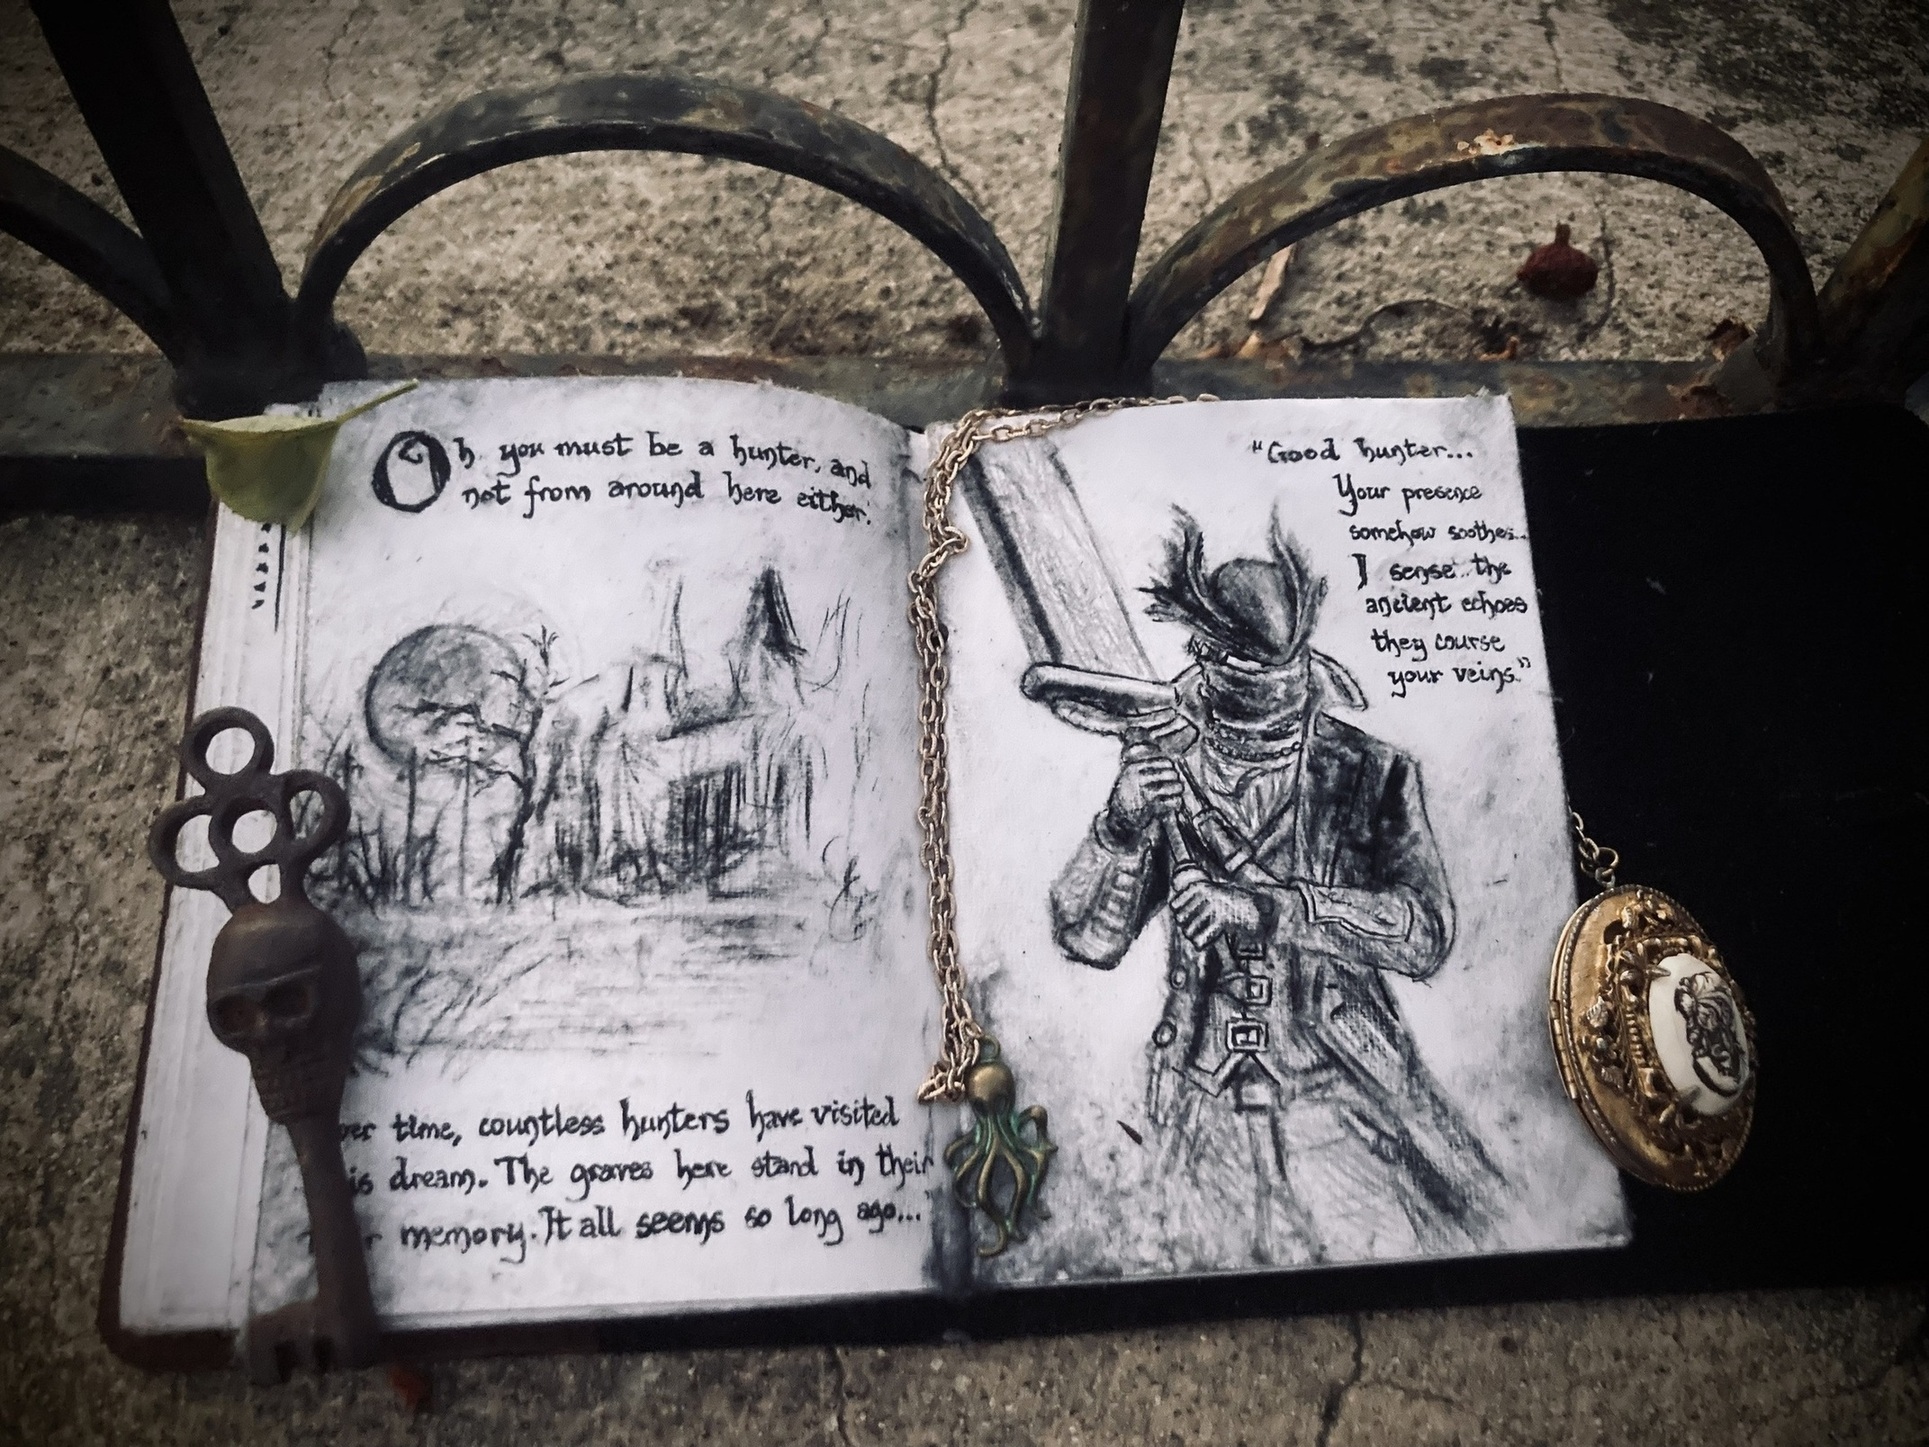 Oh you must be a hunter, and
not from around here either.
time, countless hunters have visited
dream. The graves here stand in their
memory. It all seems so long ago...
"Good hunter...
Your presence
somehow soothes..
I sense the
ancient echoes
they course
your veins."